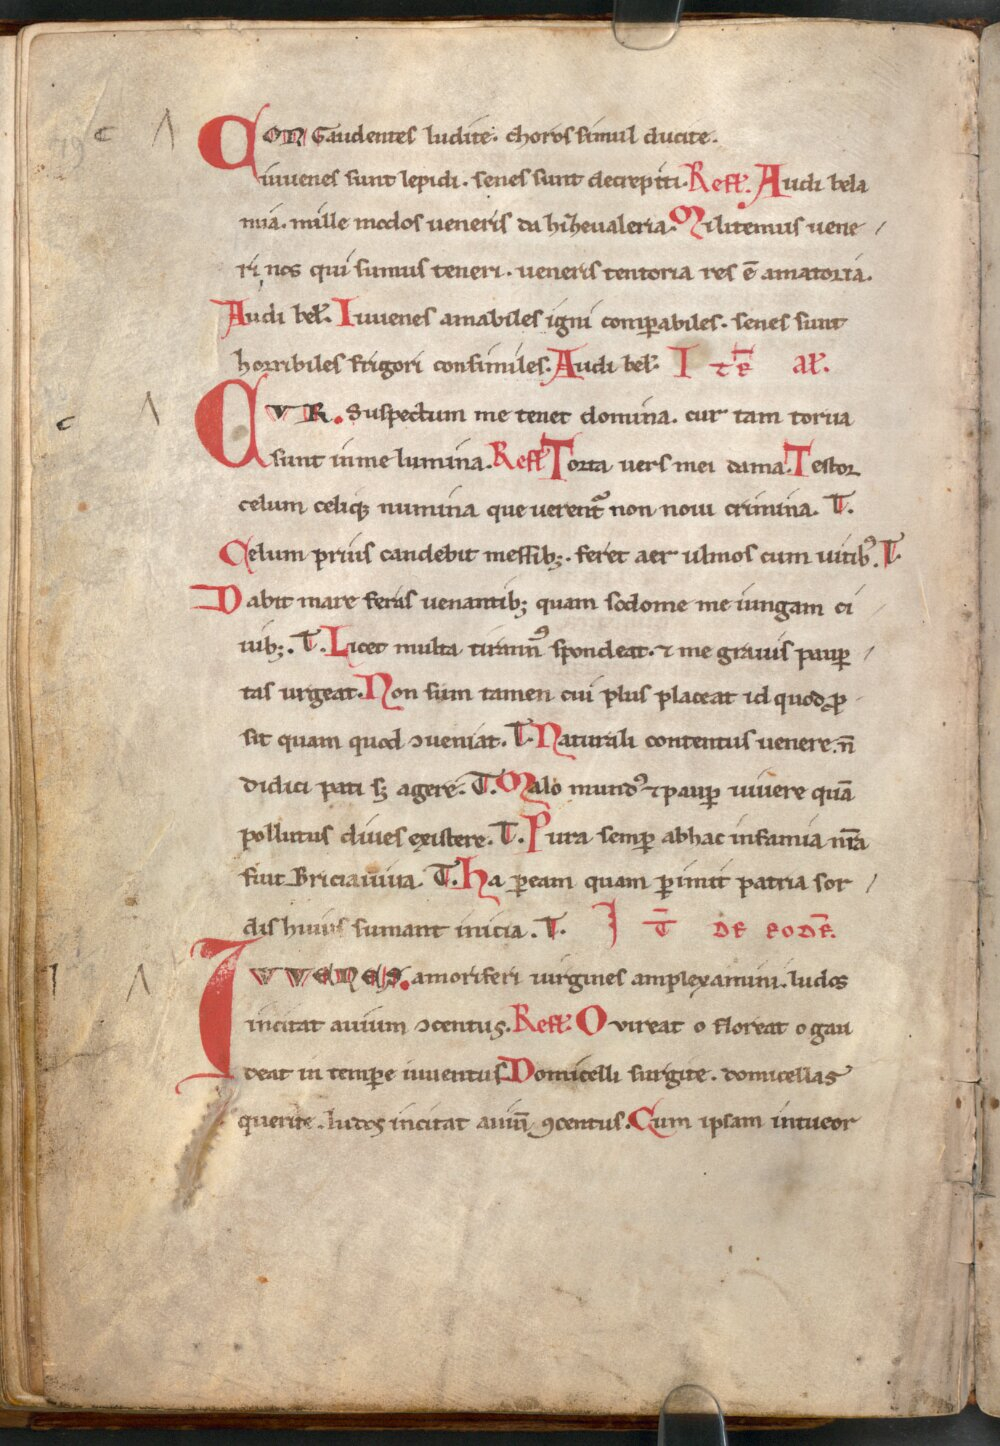 CON Gaudentes ludite. choros simul ducite.
iuuenes sunt lepidi. senes sunt decrepiti. Refl. Audi bela
mia. mille modos ueneris da hizheualeria. Militemus uene
ri nos qui sumus teneri. ueneris tentoria res ē amatoria.
Audi bel. Iuuenes amabiles igni conꝑabiles. senes sunt
horribiles frigori consimiles. Audi bel. Itē al.
CVR. Suspectum me tenet domina. cur tam torua
sunt in me lumina. Refl. Torta uers mei dama. Testor
celum celiqꝫ numina que uerentᷣ non noui crimina. T.
Celum prius candebit messibꝫ. feret aer ulmos cum uitibꝰ. T.
Dabit mare feras uenantibꝫ quam sodome me iungam ci
uibꝫ. T. Licet multa tirannꝰ spondeat. ⁊ me grauis pauꝑ
tas urgeat. Non sum tamen cui plus placeat id quod ꝓ
sit quam quod ↄueniat. T. Naturali contentus uenere. n̄
didici pati sꝫ agere. T. Malo mundꝰ ⁊ pauꝑ uiuere quā
pollutus diues existere. T. Pura semꝑ ab hac infamia nr̄a
fiut Briciauuia. T. Ha ꝑeam quam ꝑ imit patria sor
dis huius sumant inicia. T. I T̄ DE EODĒ.
IVVENES. amoriferi uirgines amplexamini. ludos
incitat auium ↄcentus. Refl. O uireat o floreat o gau
deat in tempore iuuentus Domicelli surgite. domicellas
querite. ludos incitat auiū ꝯcentus. Cum ipsam intueor